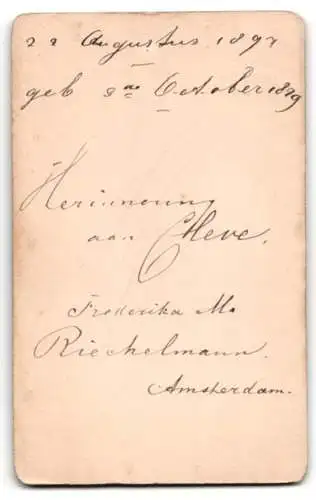 22 Augustus 1897
geb 3de October 1879
Herinnering
aan Cleve.
Frederika M.
Riechelmann.
Amsterdam.